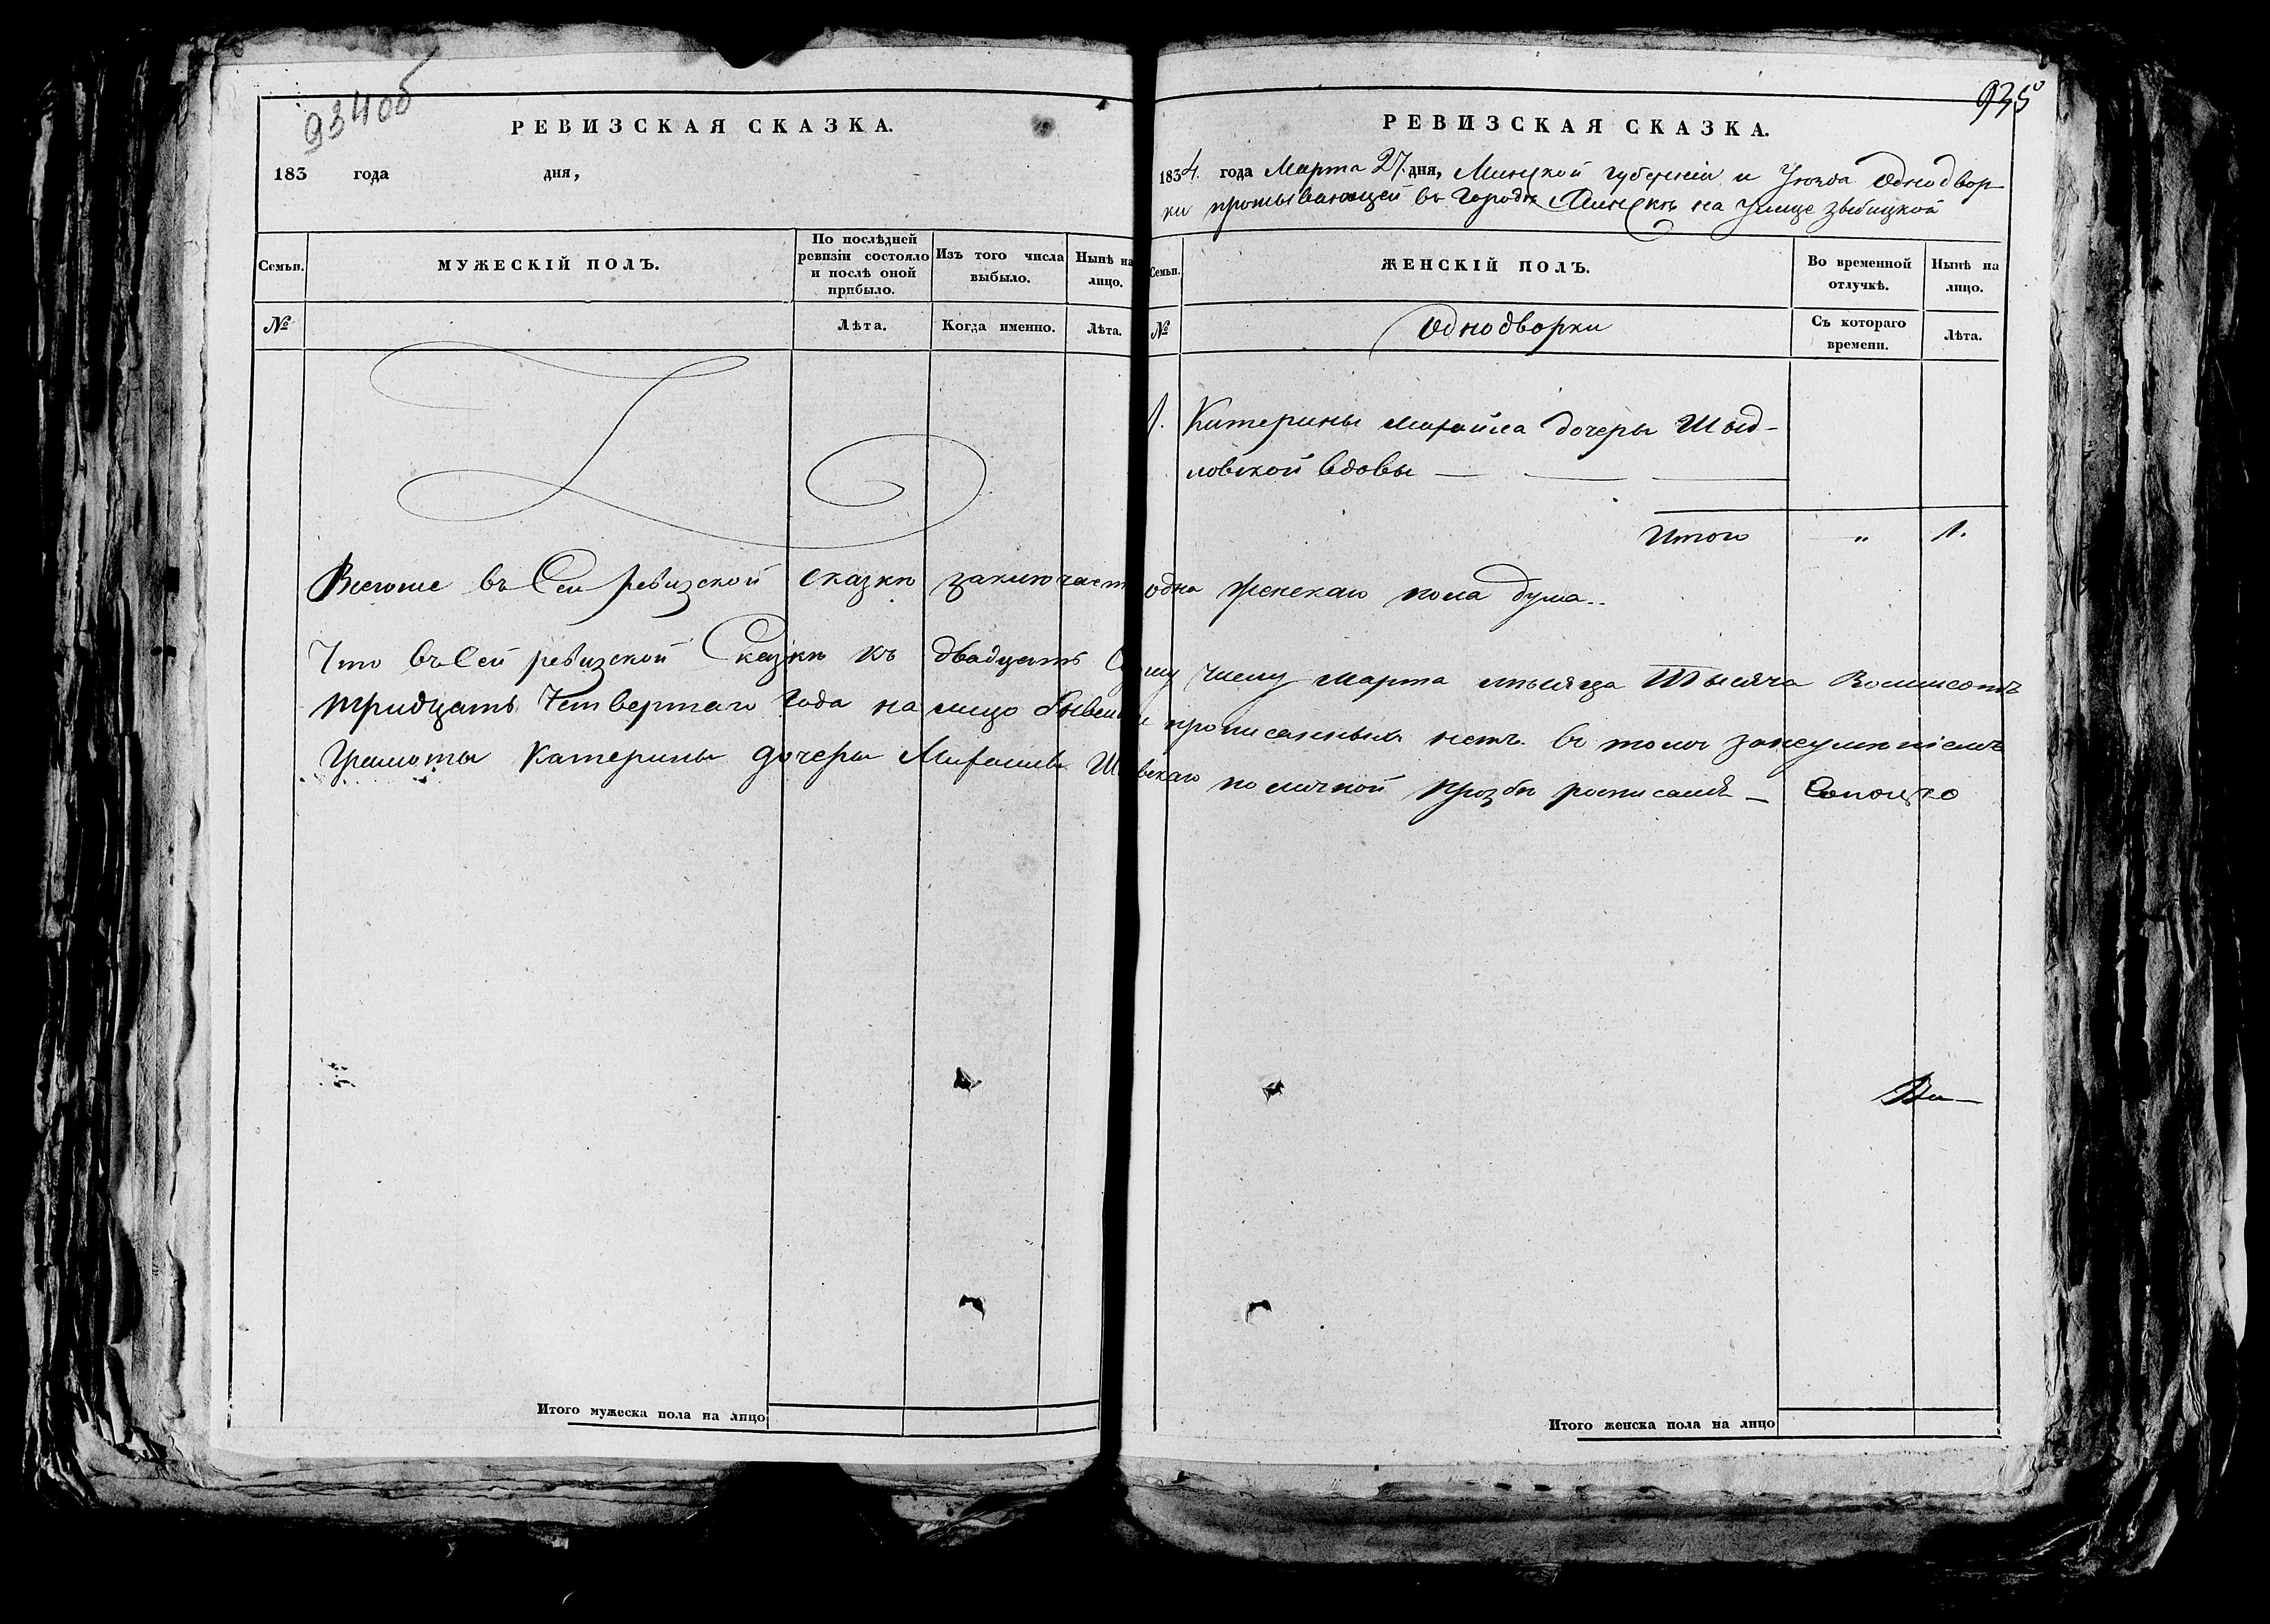 934об
РЕВИЗСКАЯ СКАЗКА.
183 года дня,
Семьи.
МУЖЕСКІЙ ПОЛЪ.
По послѣдней ревизіи состояло и послѣ оной прибыло.
Изъ того числа выбыло.
Нынѣ на лицо.
№
Лѣта.
Когда именно.
Лѣта.
935
РЕВИЗСКАЯ СКАЗКА.
1834. года Марта 27. дня, Минской губерніи и Уѣзда Однодвор
ки проживающей въ Городѣ Минскѣ на улице Збицкой
Семьи.
ЖЕНСКІЙ ПОЛЪ.
Во временной отлучкѣ.
Нынѣ на лицо.
№
Однодворки
Съ котораго времени.
Лѣта.
1. Катерины Михайла дочеры Шыд-
ловской вдовы
Итого " 1.
Всегоже въ Сей ревизской сказкѣ заключаетъ одна женскаго пола душа..
Что въ Сей ревизской Сказкѣ къ двадцать числу марта мѣсяца Тысяча Восьмисотъ
тридцать Четвертаго Года на лицо прописанныхъ нетъ въ томъ
Грамоты Катерины дочеры по личной прозбѣ росписался
Итого мужеска пола на лицо
Итого женска пола на лицо